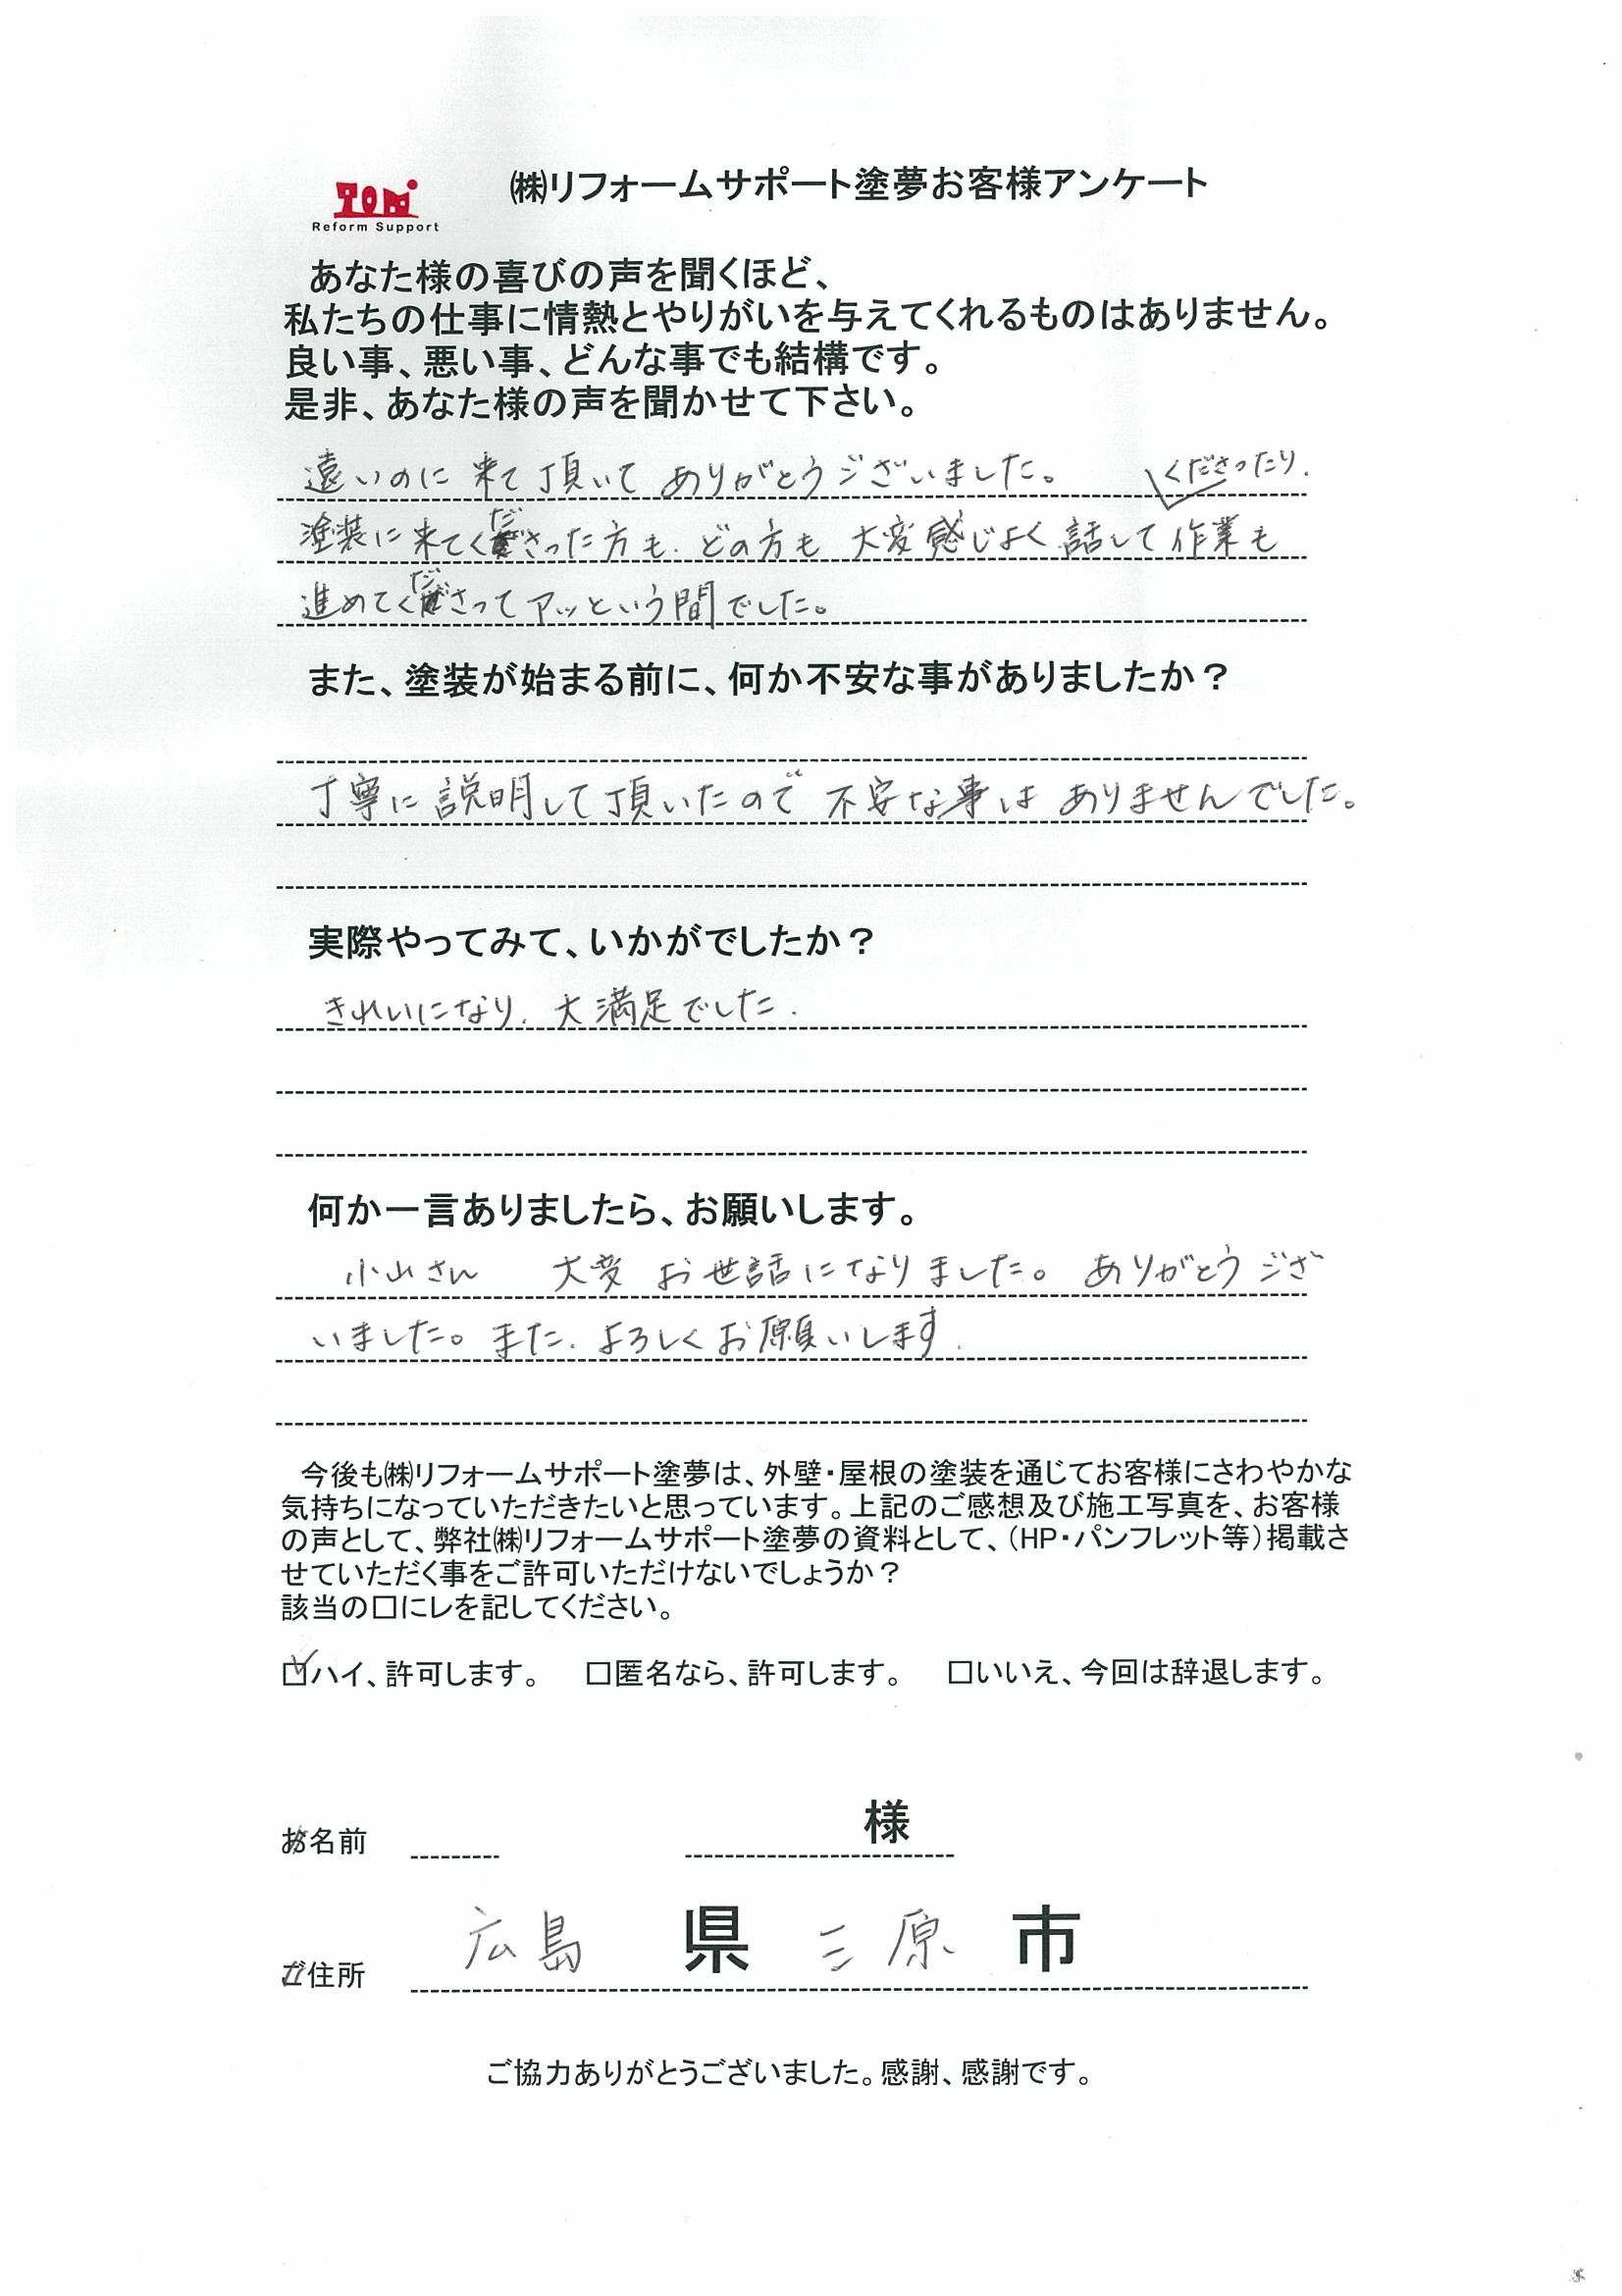 TOM
Reform Support
㈱リフォームサポート塗夢お客様アンケート
あなた様の喜びの声を聞くほど、
私たちの仕事に情熱とやりがいを与えてくれるものはありません。
良い事、悪い事、どんな事でも結構です。
是非、あなた様の声を聞かせて下さい。
遠いのに来て頂いてありがとうございました。
くださったり、
塗装に来てくださった方も、どの方も大変感じよく話して作業も
進めてくださってアッという間でした。
また、塗装が始まる前に、何か不安な事がありましたか？
丁寧に説明して頂いたので不安な事はありませんでした。
実際やってみて、いかがでしたか？
きれいになり、大満足でした.
何か一言ありましたら、お願いします。
小山さん 大変お世話になりました。ありがとうござ
いました。また、よろしくお願いします.
今後も㈱リフォームサポート塗夢は、外壁・屋根の塗装を通じてお客様にさわやかな
気持ちになっていただきたいと思っています。上記のご感想及び施工写真を、お客様
の声として、弊社㈱リフォームサポート塗夢の資料として、（HP・パンフレット等）掲載さ
せていただく事をご許可いただけないでしょうか？
該当の□にレを記してください。
☑ハイ、許可します。 □匿名なら、許可します。 □いいえ、今回は辞退します。
お名前 様
ご住所 広島県三原市
ご協力ありがとうございました。感謝、感謝です。